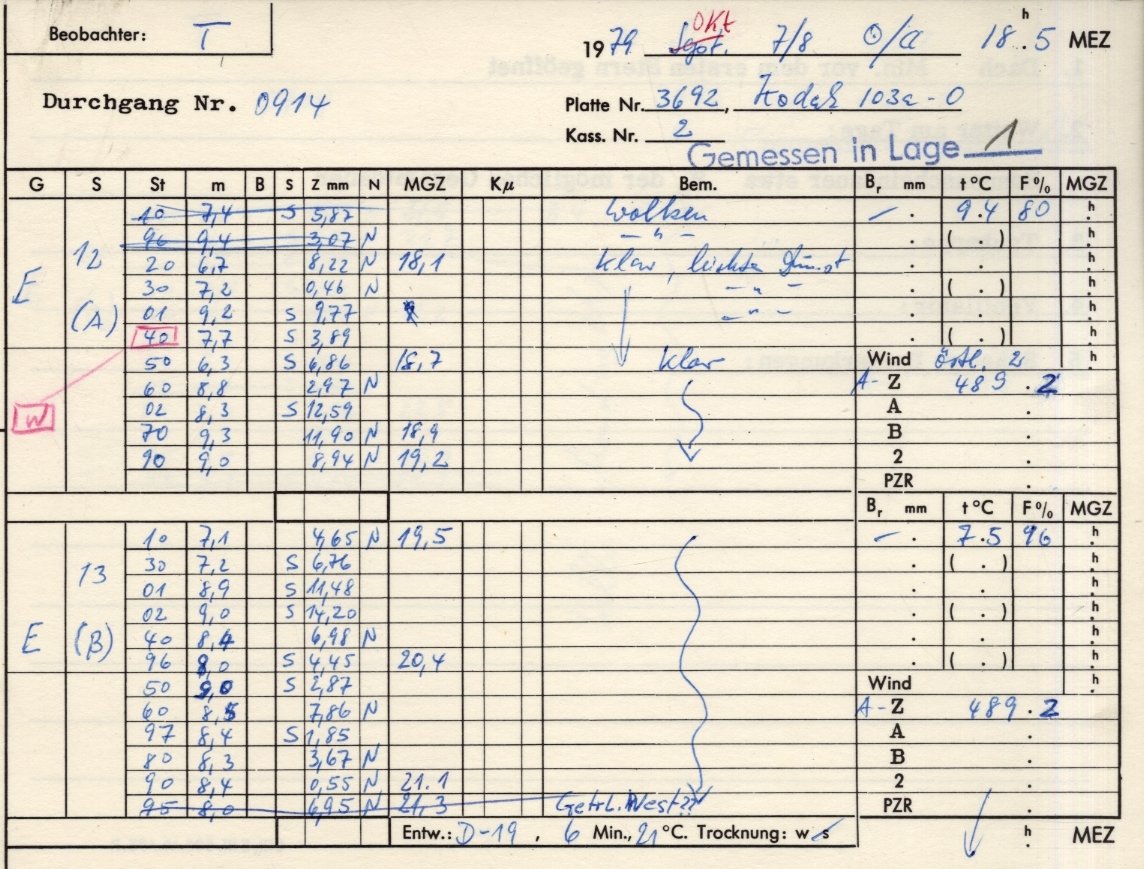 Beobachter: T
1979 Sept. Okt 7/8 ʘ/a 18 h . 5 MEZ
Durchgang Nr. 0914
Platte Nr. 3692, Kodak 103a-O
Kass. Nr. 2
Gemessen in Lage 1
G S St m B S Z mm N MGZ Kμ Bem. Br mm t °C F % MGZ
10 7,4 S 5,87 Wolken – . 9.4 80 h
96 9,4 3,07 N – " – . ( . )
E 12 (A) 20 6,7 8,22 N 18,1 klar, leichter Dunst . . h
30 7,2 0,46 N – " – . ( . )
01 9,2 S 9,77 – " – . . h
40 7,7 S 3,89 . ( . )
50 6,3 S 6,86 18,7 klar Wind östl. 2 h
60 8,8 2,97 N A-Z 489 . 2
W 02 8,3 S 12,59 A .
70 9,3 11,90 N 18,9 B .
90 9,0 8,94 N 19,2 2 .
PZR .
Br mm t °C F % MGZ
10 7,1 4,65 N 19,5 – . 7.5 96 h
30 7,2 S 6,76 . ( . )
13 01 8,9 S 11,48 . . h
02 9,0 S 14,20 . ( . )
E (B) 40 8,4 6,98 N . . h
96 8,0 S 4,45 20,4 . ( . )
50 9,0 S 2,87 Wind h
60 8,5 7,86 N A-Z 489 . 2
97 8,4 S 1,85 A .
80 8,3 3,67 N B .
90 8,4 0,55 N 21.1 2 .
95 8,0 6,95 N 21,3 Getr. West?? PZR .
Entw.: D-19, 6 Min., 21 °C. Trocknung: w s h . MEZ